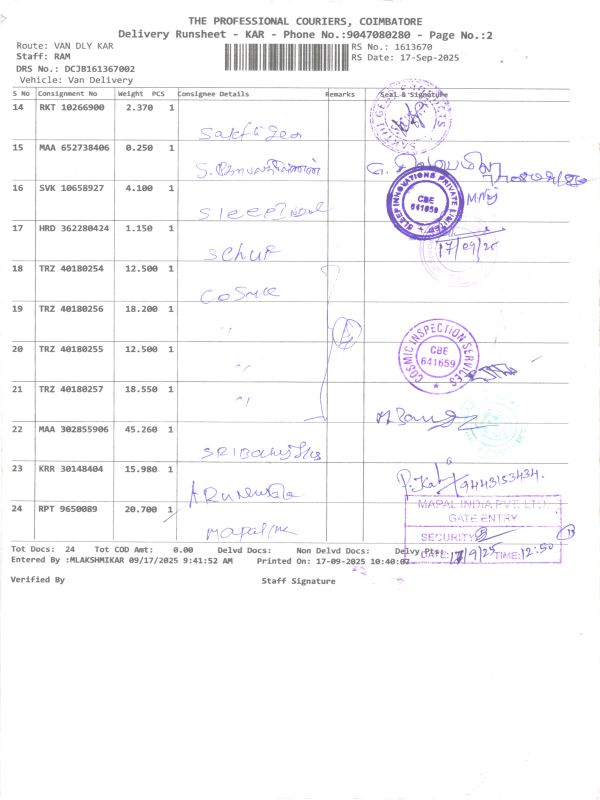 THE PROFESSIONAL COURIERS, COIMBATORE
Delivery Runsheet - KAR - Phone No.:9047080280 - Page No.:2
Route: VAN DLY KAR
RS No.: 1613670
Staff: RAM
RS Date: 17-Sep-2025
DRS No.: DCJB161367002
Vehicle: Van Delivery
S No Consignment No Weight PCS Consignee Details Remarks Seal & Signature
14 RKT 10266900 2.370 1
15 MAA 652738406 0.250 1
16 SVK 10658927 4.100 1
SLEEP INNOVATIONS PRIVATE LIMITED
CBE
641659
17 HRD 362280424 1.150 1
17/09/25
18 TRZ 40180254 12.500 1
19 TRZ 40180256 18.200 1
20 TRZ 40180255 12.500 1
COSMIC INSPECTION SERVICES
CBE
641659
21 TRZ 40180257 18.550 1
22 MAA 302855906 45.260 1
23 KRR 30148404 15.980 1
9443153434.
24 RPT 9650089 20.700 1
MAPAL INDIA PVT. LTD.
GATE ENTRY
SECURITY
DATE: 17/9/25 TIME: 12:50
Tot Docs: 24 Tot COD Amt: 0.00 Delvd Docs: Non Delvd Docs: Delvy Pts:
Entered By :MLAKSHMIKAR 09/17/2025 9:41:52 AM Printed On: 17-09-2025 10:40:07
Verified By Staff Signature